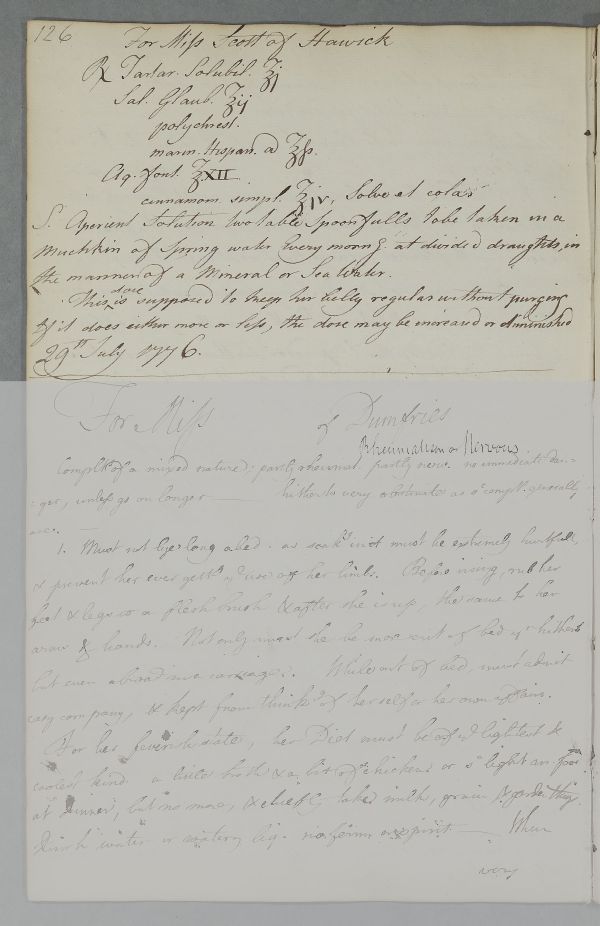 126
For Miss Scott of Hawick
℞ Tartar. Solubil. ℥j
Sal. Glaub. ℥ij
polychrest.
marin. Hispan. a ℥ſs.
Aq. font. ℥XII
cinnamom. simpl. ℥IV, Solve et cola
S. Aperient Solution two table spoonfulls to be taken in a
Mutchkin of Spring water every morng. at divided draughts, in
the manner of a Mineral or Sea Water.
This dose is supposed to keep her belly regular without purging
If it does either more or less, the dose may be increased or diminished
29th July 1776.
For Miss of Dumfries
Rheumatism or Nervous
Complt. of a mixed nature, partly rheumat. partly nerv. no immediate dan-
ger, unless go on longer hitherto very obstinate as complts. generally
are.
1. Must not lye long abed. as must be extremely hurtfull,
& prevent her ever use of her limbs. Before rising, rub her
feet & legs a flesh brush & after she is up, the same to her
arms & hands. Not only must she be more out of bed hitherto
but even abroad in a carriage. While out of bed, must admit
easy company, & kept from think of herself or her own affairs.
For her feverish state, her Diet must be of lightest &
coolest kind. a little broth & a bit of chicken or light
at dinner, but no more, & chiefly take milk, grain & garden things
Drink water or watery no spirit When
very